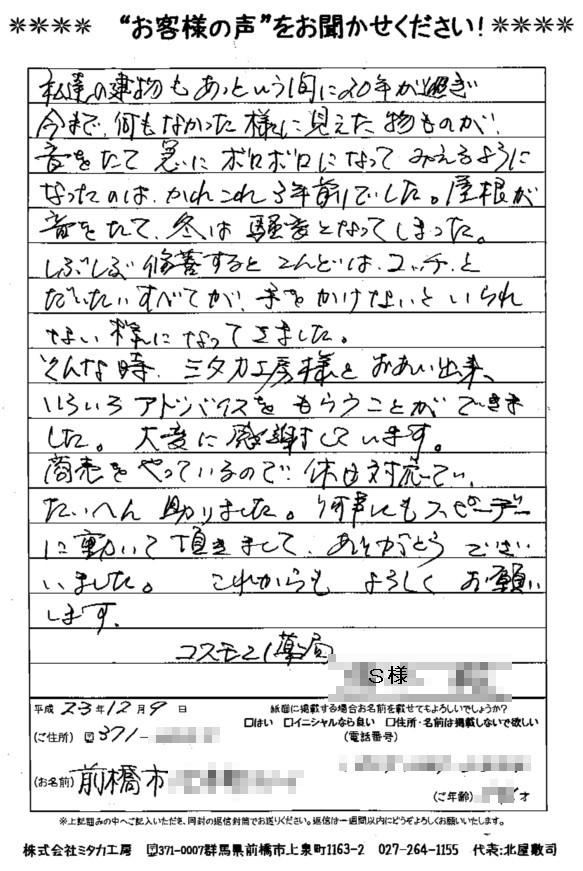 ＊＊＊＊ “お客様の声”をお聞かせください！＊＊＊＊
私達の建物もあっという間に20年が過ぎ
今まで、何もなかった様に見えた物ものが、
音をたて急にボロボロになってみえるように
なったのは、かれこれ3年前でした。屋根が
音をたて、冬は騒音となってしまった。
しぶしぶ修善するとこんどは、コッチ、と
だいたいすべてが、手をかけないといられ
ない様になってきました。
そんな時、ミタカ工房様とおあい出来、
いろいろアドバイスをもらうことができま
した。大変に感謝しています。
商売をやっているので、休日対応でい
たいへん助りました。何事にもスピーデー
に動いて頂きまして、ありがとうござい
いました。 これからも よろしく お願い
します。
コスモス薬局
S様
平成 23年12月9日
紙面に掲載する場合お名前を載せてもよろしいでしょうか？
□はい □イニシャルなら良い □住所・名前は掲載しないで欲しい
(ご住所) 〒371-
(電話番号)
(お名前) 前橋市
(ご年齢) 才
※上記囲みの中へご記入いただき、同封の返信封筒でお送りください。返信は一週間以内にどうぞよろしくお願いいたします。
株式会社ミタカ工房 〒371-0007群馬県前橋市上泉町1163-2 027-264-1155 代表:北屋敷司